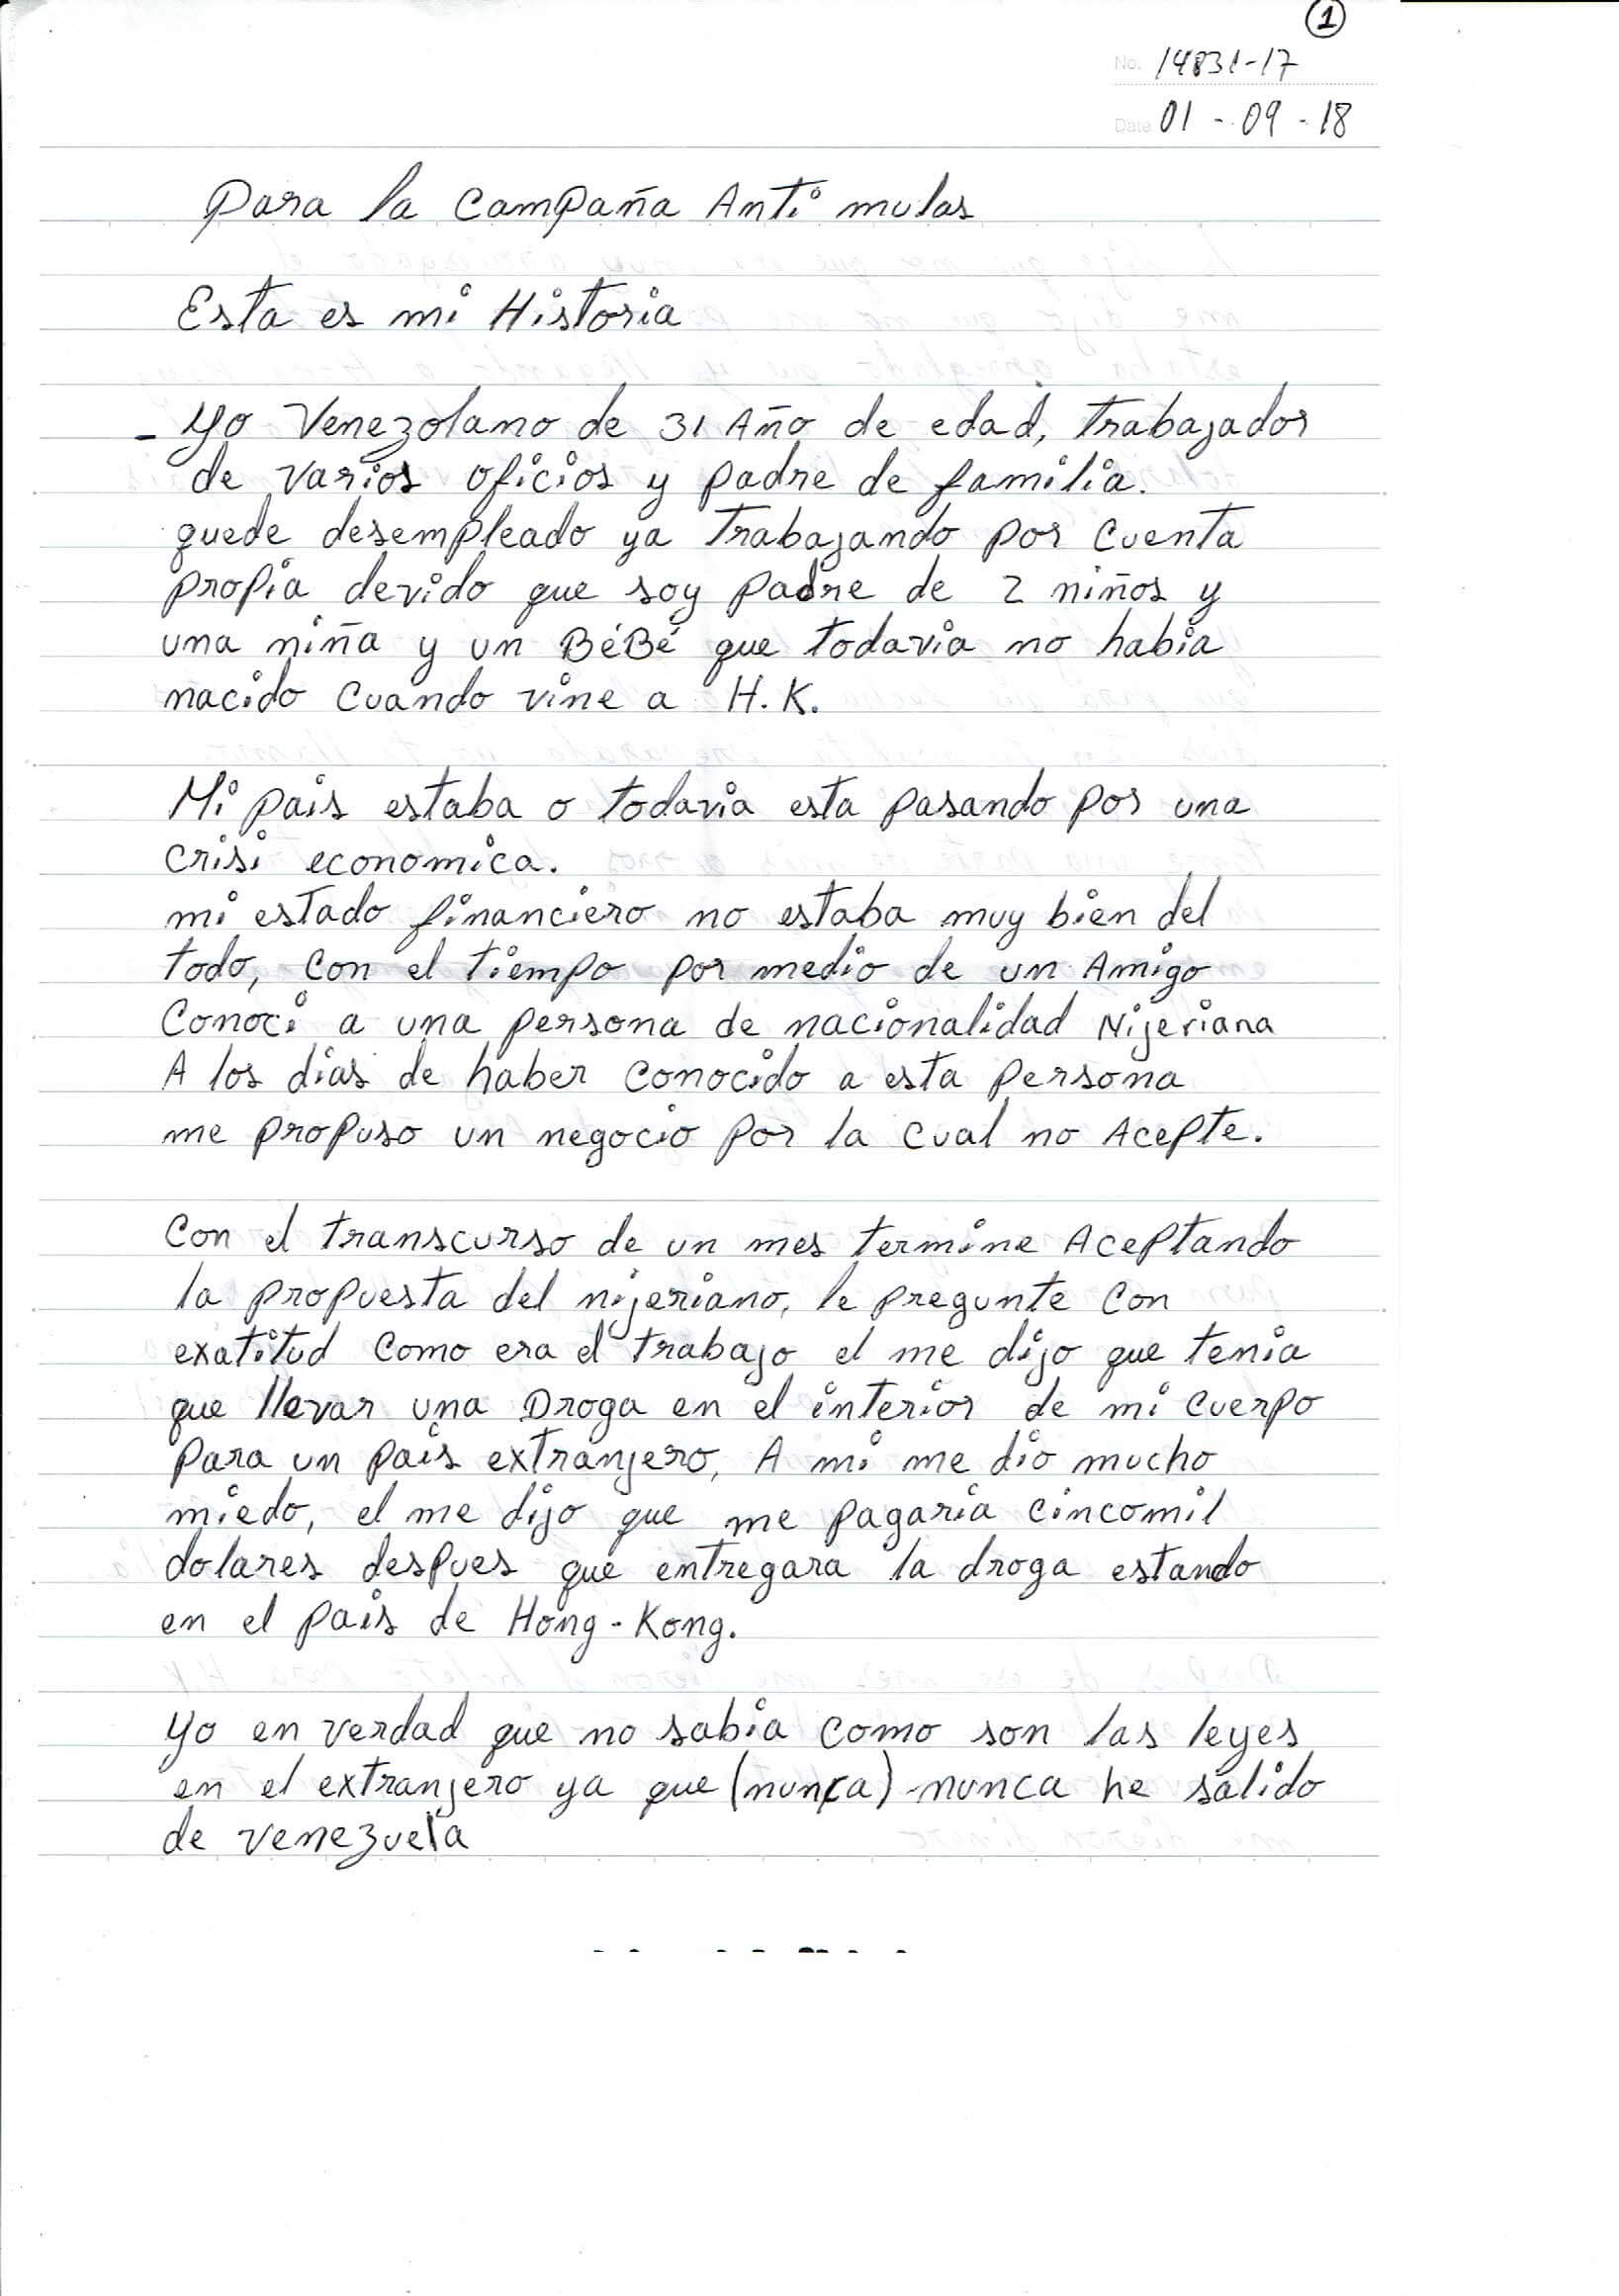 1
No. 14831-17
Date 01 - 09 - 18
Para la Campaña Anti mulas
Esta es mi Historia
- Yo Venezolano de 31 Año de edad, Trabajador
de varios oficios y padre de familia.
quede desempleado ya Trabajando por cuenta
propia devido que soy padre de 2 niños y
una niña y un BéBé que todavia no habia
nacido cuando vine a H.K.
Mi pais estaba o todavia esta pasando por una
crisi economica.
mi estado financiero no estaba muy bien del
todo, con el tiempo por medio de un Amigo
Conoci a una persona de nacionalidad Nijeriana
A los dias de haber conocido a esta persona
me propuso un negocio por la cual no Acepte.
Con el transcurso de un mes termine Aceptando
la propuesta del nijeriano, le pregunte con
exatitud como era el trabajo el me dijo que tenia
que llevar una Droga en el interior de mi cuerpo
para un pais extranjero, A mi me dio mucho
miedo, el me dijo que me pagaria cincomil
dolares despues que entregara la droga estando
en el pais de Hong-Kong.
Yo en verdad que no sabia como son las leyes
en el extranjero ya que (nunca) nunca he salido
de venezuela